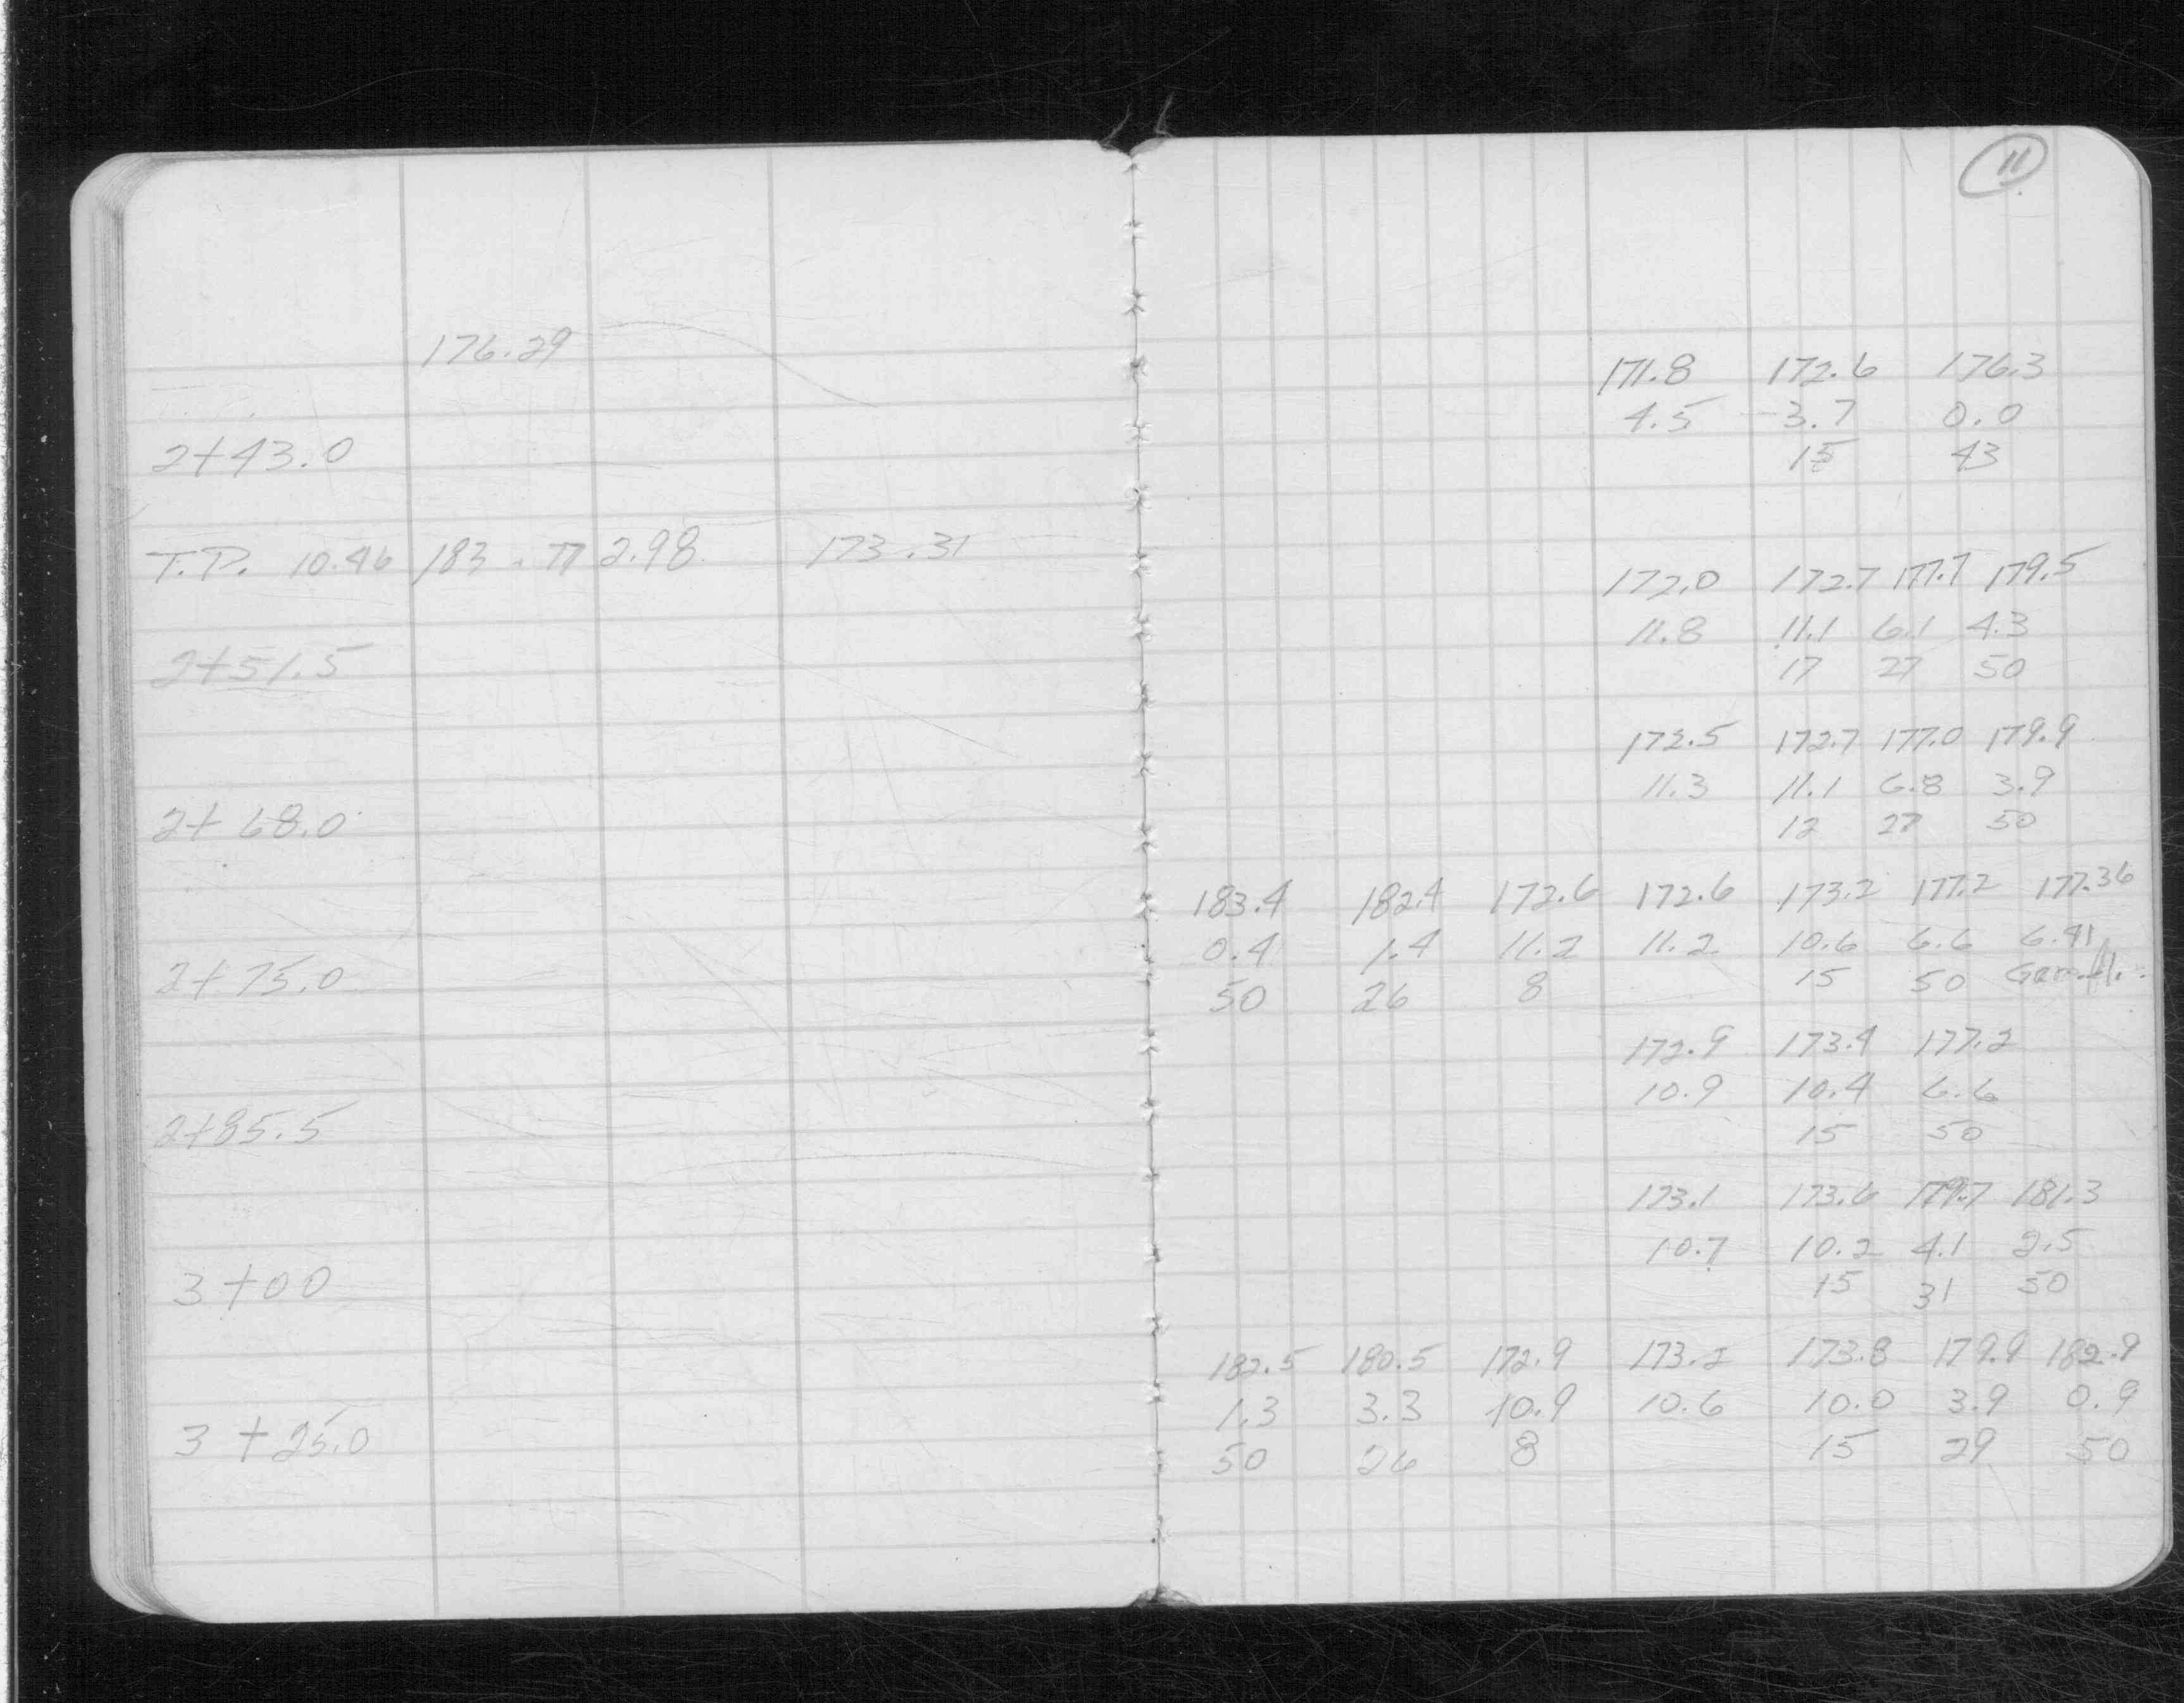 11
176.29
171.8 172.6 176.3
4.5 3.7 0.0
2+43.0 15 43
T.P. 10.46 183.77 2.98 173.31
172.0 172.7 177.7 179.5
11.8 11.1 6.1 4.3
2+51.5 17 27 50
172.5 172.7 177.0 179.9
11.3 11.1 6.8 3.9
2+68.0 12 27 50
183.4 182.4 172.6 172.6 173.2 177.2 177.36
0.4 1.4 11.2 11.2 10.6 6.6 6.41
2+75.0 50 26 8 15 50
172.9 173.4 177.2
10.9 10.4 6.6
2+85.5 15 50
173.1 173.6 179.7 181.3
10.7 10.2 4.1 2.5
3+00 15 31 50
182.5 180.5 172.9 173.2 173.8 179.9 182.9
1.3 3.3 10.9 10.6 10.0 3.9 0.9
3+25.0 50 26 8 15 29 50